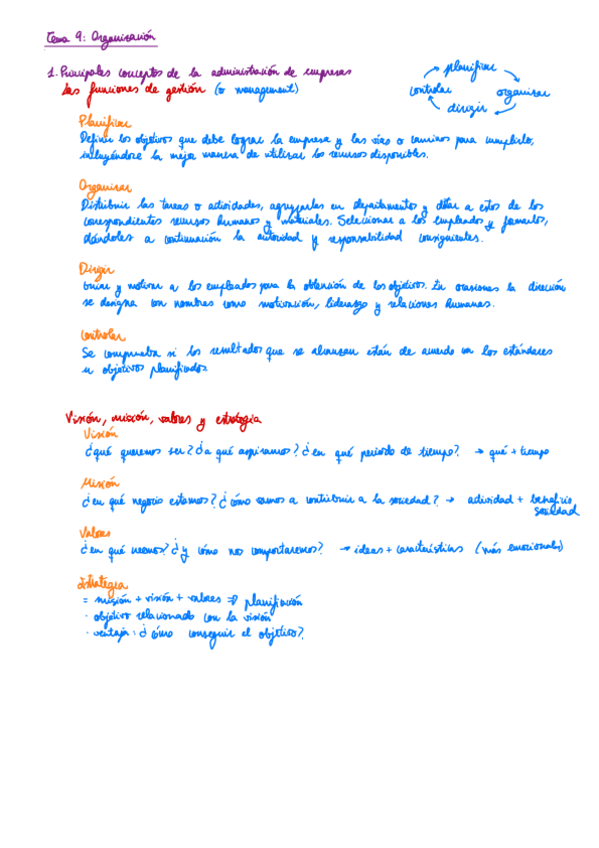 Tema 9: Organización
1. Principales conceptos de la administración de empresas
Las funciones de gestión (o management)
planificar
organizar
dirigir
controlar
Planificar
Definir los objetivos que debe lograr la empresa y las vías o caminos para cumplirlo,
incluyéndose la mejor manera de utilizar los recursos disponibles.
Organizar
Distribuir las tareas o actividades, agruparlas en departamentos y dotar a estos de los
correspondientes recursos humanos y materiales. Seleccionar a los empleados y formarlos,
dándoles a continuación la autoridad y responsabilidad consiguientes.
Dirigir
Guiar y motivar a los empleados para la obtención de los objetivos. En ocasiones la dirección
se designa con nombres como motivación, liderazgo y relaciones humanas.
Controlar
Se comprueba si los resultados que se alcanzan están de acuerdo con los estándares
u objetivos planificados.
Visión, misión, valores y estrategia
Visión
¿qué queremos ser? ¿a qué aspiramos? ¿en qué periodo de tiempo? → qué + tiempo
Misión
¿en qué negocio estamos? ¿cómo vamos a contribuir a la sociedad? → actividad + beneficio
sociedad
Valores
¿en qué creemos? ¿y cómo nos comportaremos? → ideas + características (más emocionales)
Estrategia
= misión + visión + valores ⇒ planificación
· objetivo relacionado con la visión
· ventaja: ¿cómo conseguir el objetivo?